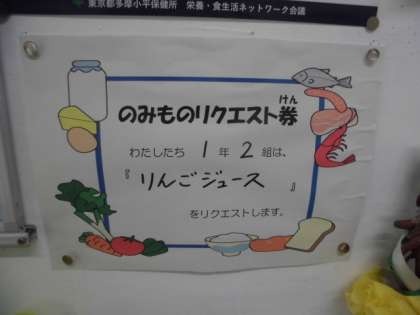 東京都多摩小平保健所 栄養・食生活ネットワーク会議
けん
のみものリクエスト券
わたしたち 1年 2組は、
『りんごジュース』
をリクエストします。